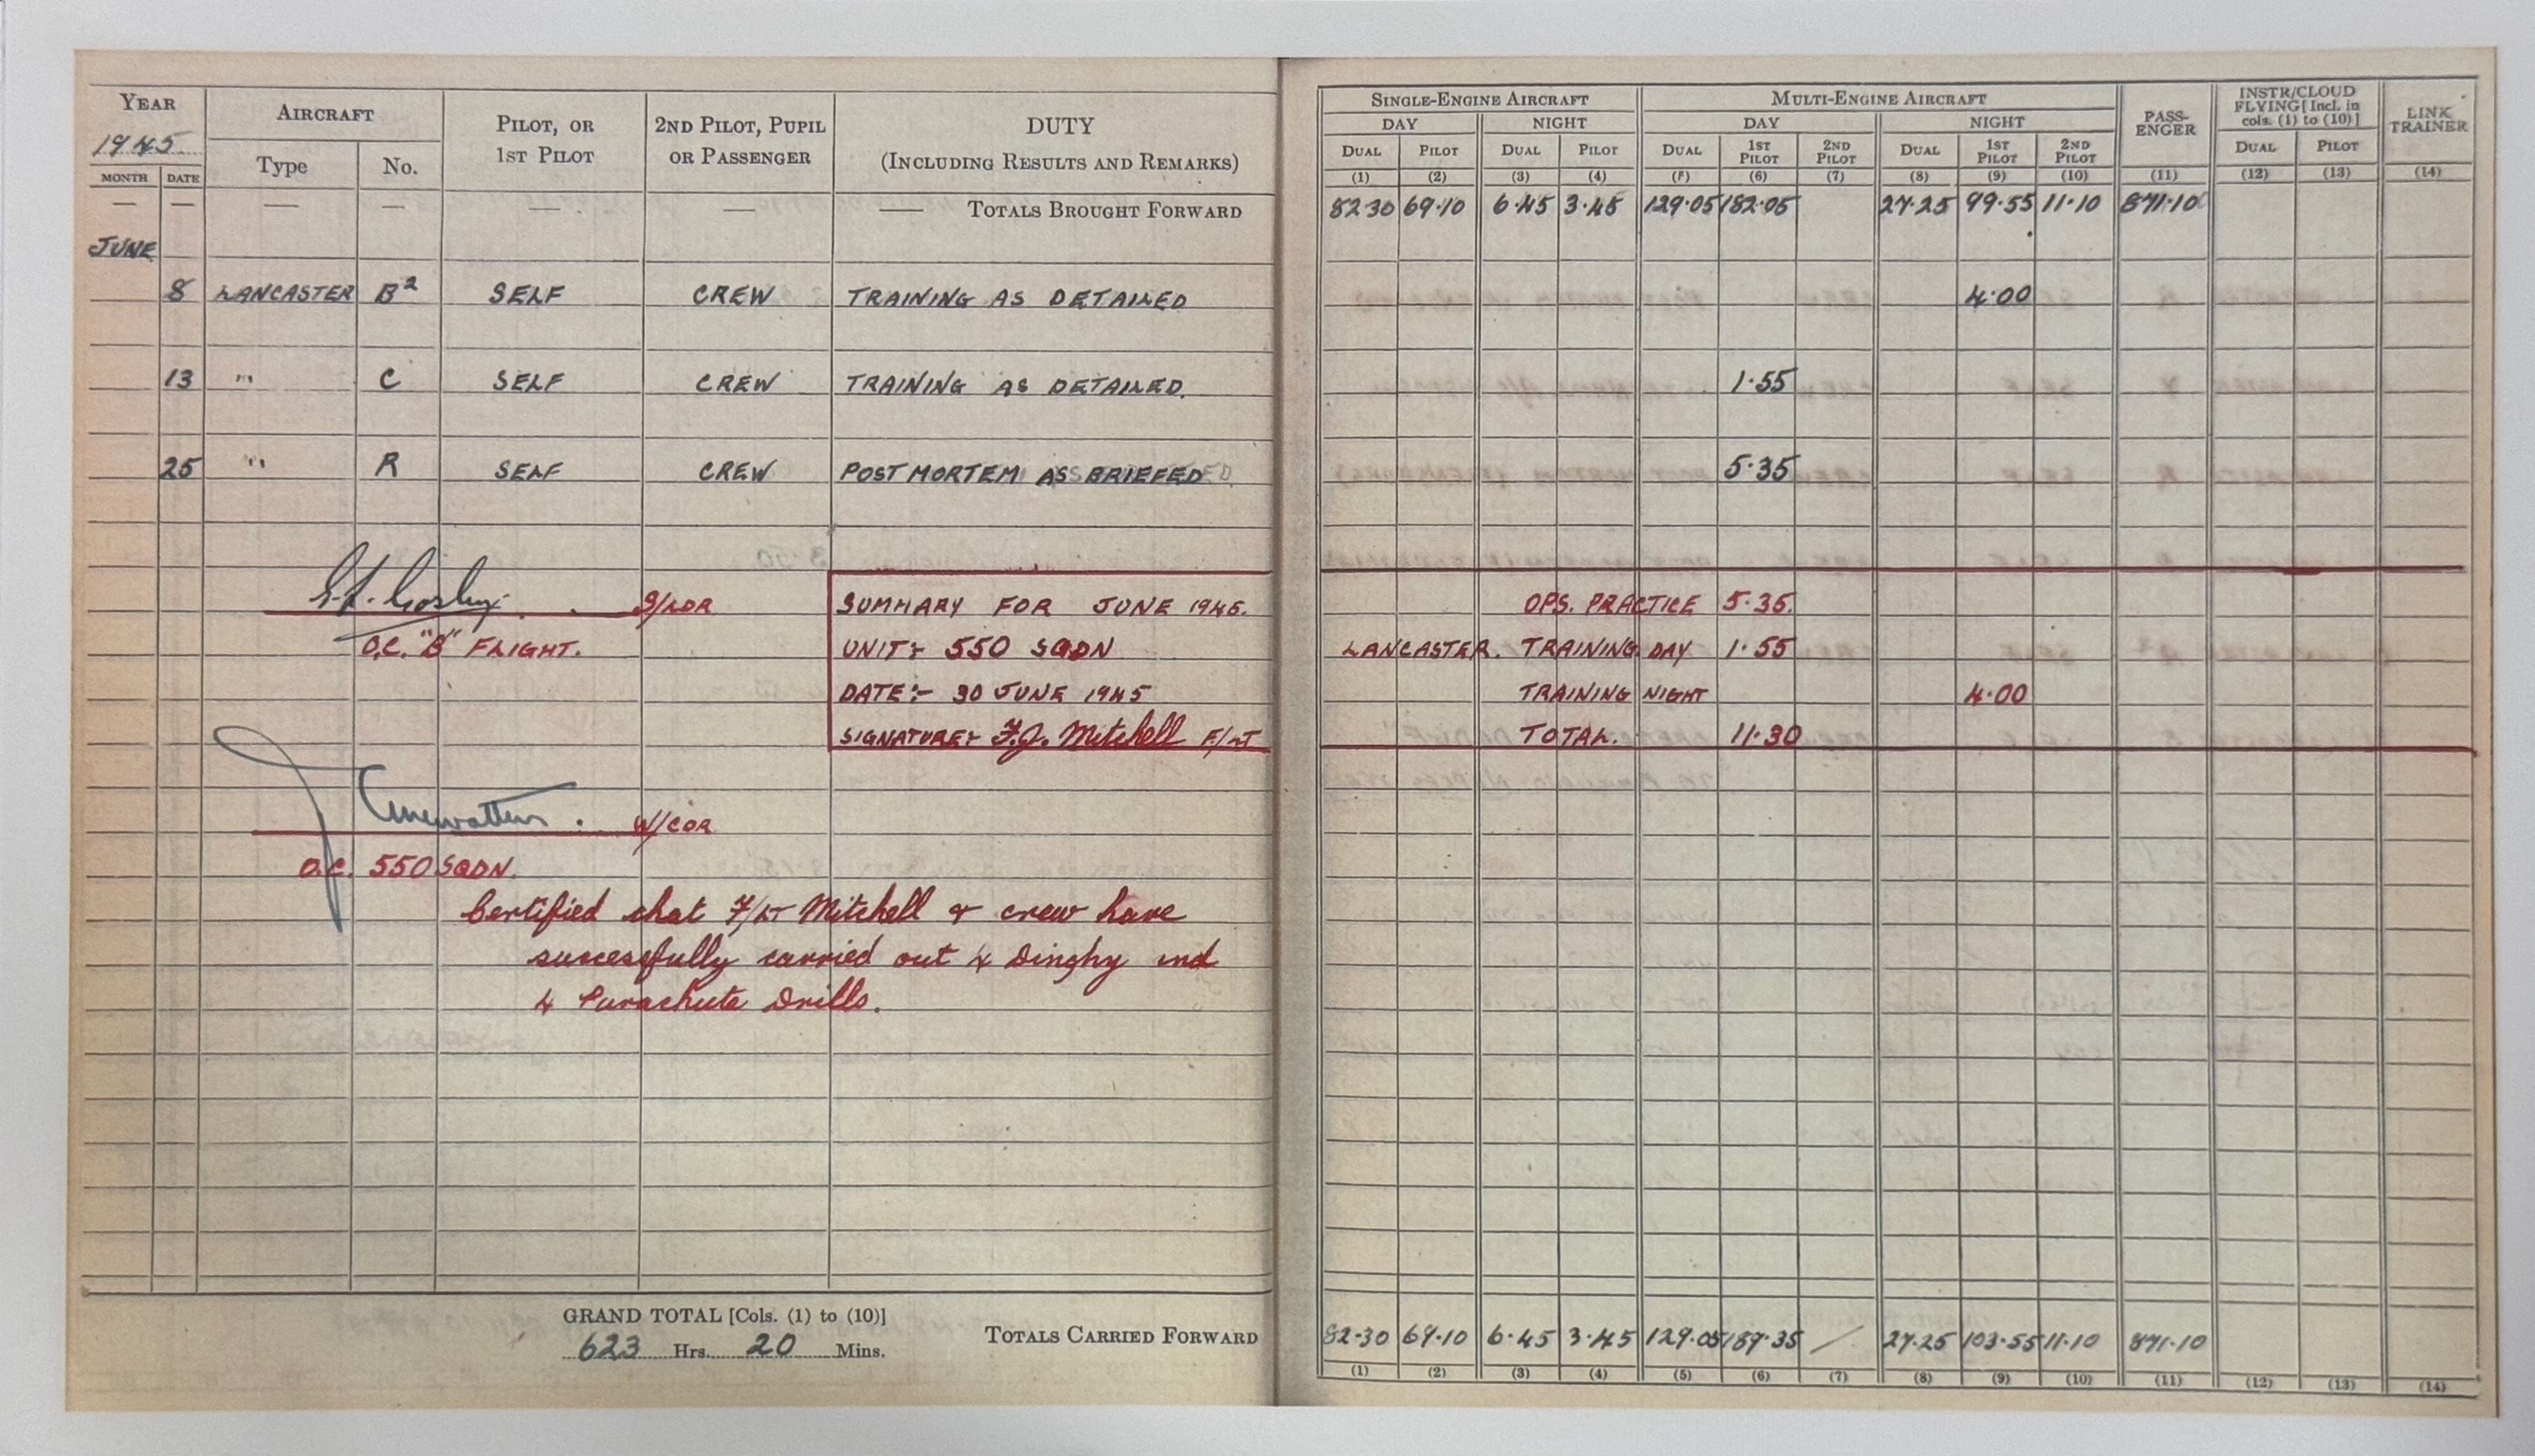 YEAR
1945
MONTH DATE
AIRCRAFT
Type No.
PILOT, OR
1ST PILOT
2ND PILOT, PUPIL
OR PASSENGER
DUTY
(INCLUDING RESULTS AND REMARKS)
SINGLE-ENGINE AIRCRAFT MULTI-ENGINE AIRCRAFT
DAY NIGHT DAY NIGHT
DUAL PILOT DUAL PILOT DUAL 1ST PILOT 2ND PILOT DUAL 1ST PILOT 2ND PILOT
PASS-
ENGER
INSTR/CLOUD
FLYING [Incl. in
cols. (1) to (10)]
DUAL PILOT
LINK
TRAINER
(1) (2) (3) (4) (5) (6) (7) (8) (9) (10) (11) (12) (13) (14)
— — — — — — — TOTALS BROUGHT FORWARD 82·30 69·10 6·45 3·45 129·05 182·05 27·25 99·55 11·10 871·10
JUNE
8 LANCASTER B² SELF CREW TRAINING AS DETAILED 4·00
13 " C SELF CREW TRAINING AS DETAILED. 1·55
25 " R SELF CREW POST MORTEM AS BRIEFED 5·35
S/LDR
O.C. "B" FLIGHT.
SUMMARY FOR JUNE 1945. OPS. PRACTICE 5·35.
UNIT:- 550 SQDN LANCASTER. TRAINING DAY 1·55
DATE:- 30 JUNE 1945 TRAINING NIGHT 4·00
SIGNATURE:- F.J. Mitchell F/LT TOTAL. 11·30
W/CDR
O.C. 550 SQDN.
Certified that F/LT Mitchell & crew have
successfully carried out 4 Dinghy and
4 Parachute Drills.
GRAND TOTAL [Cols. (1) to (10)]
623 Hrs. 20 Mins.
TOTALS CARRIED FORWARD 82·30 69·10 6·45 3·45 129·05 189·35 / 27·25 103·55 11·10 871·10
(1) (2) (3) (4) (5) (6) (7) (8) (9) (10) (11) (12) (13) (14)